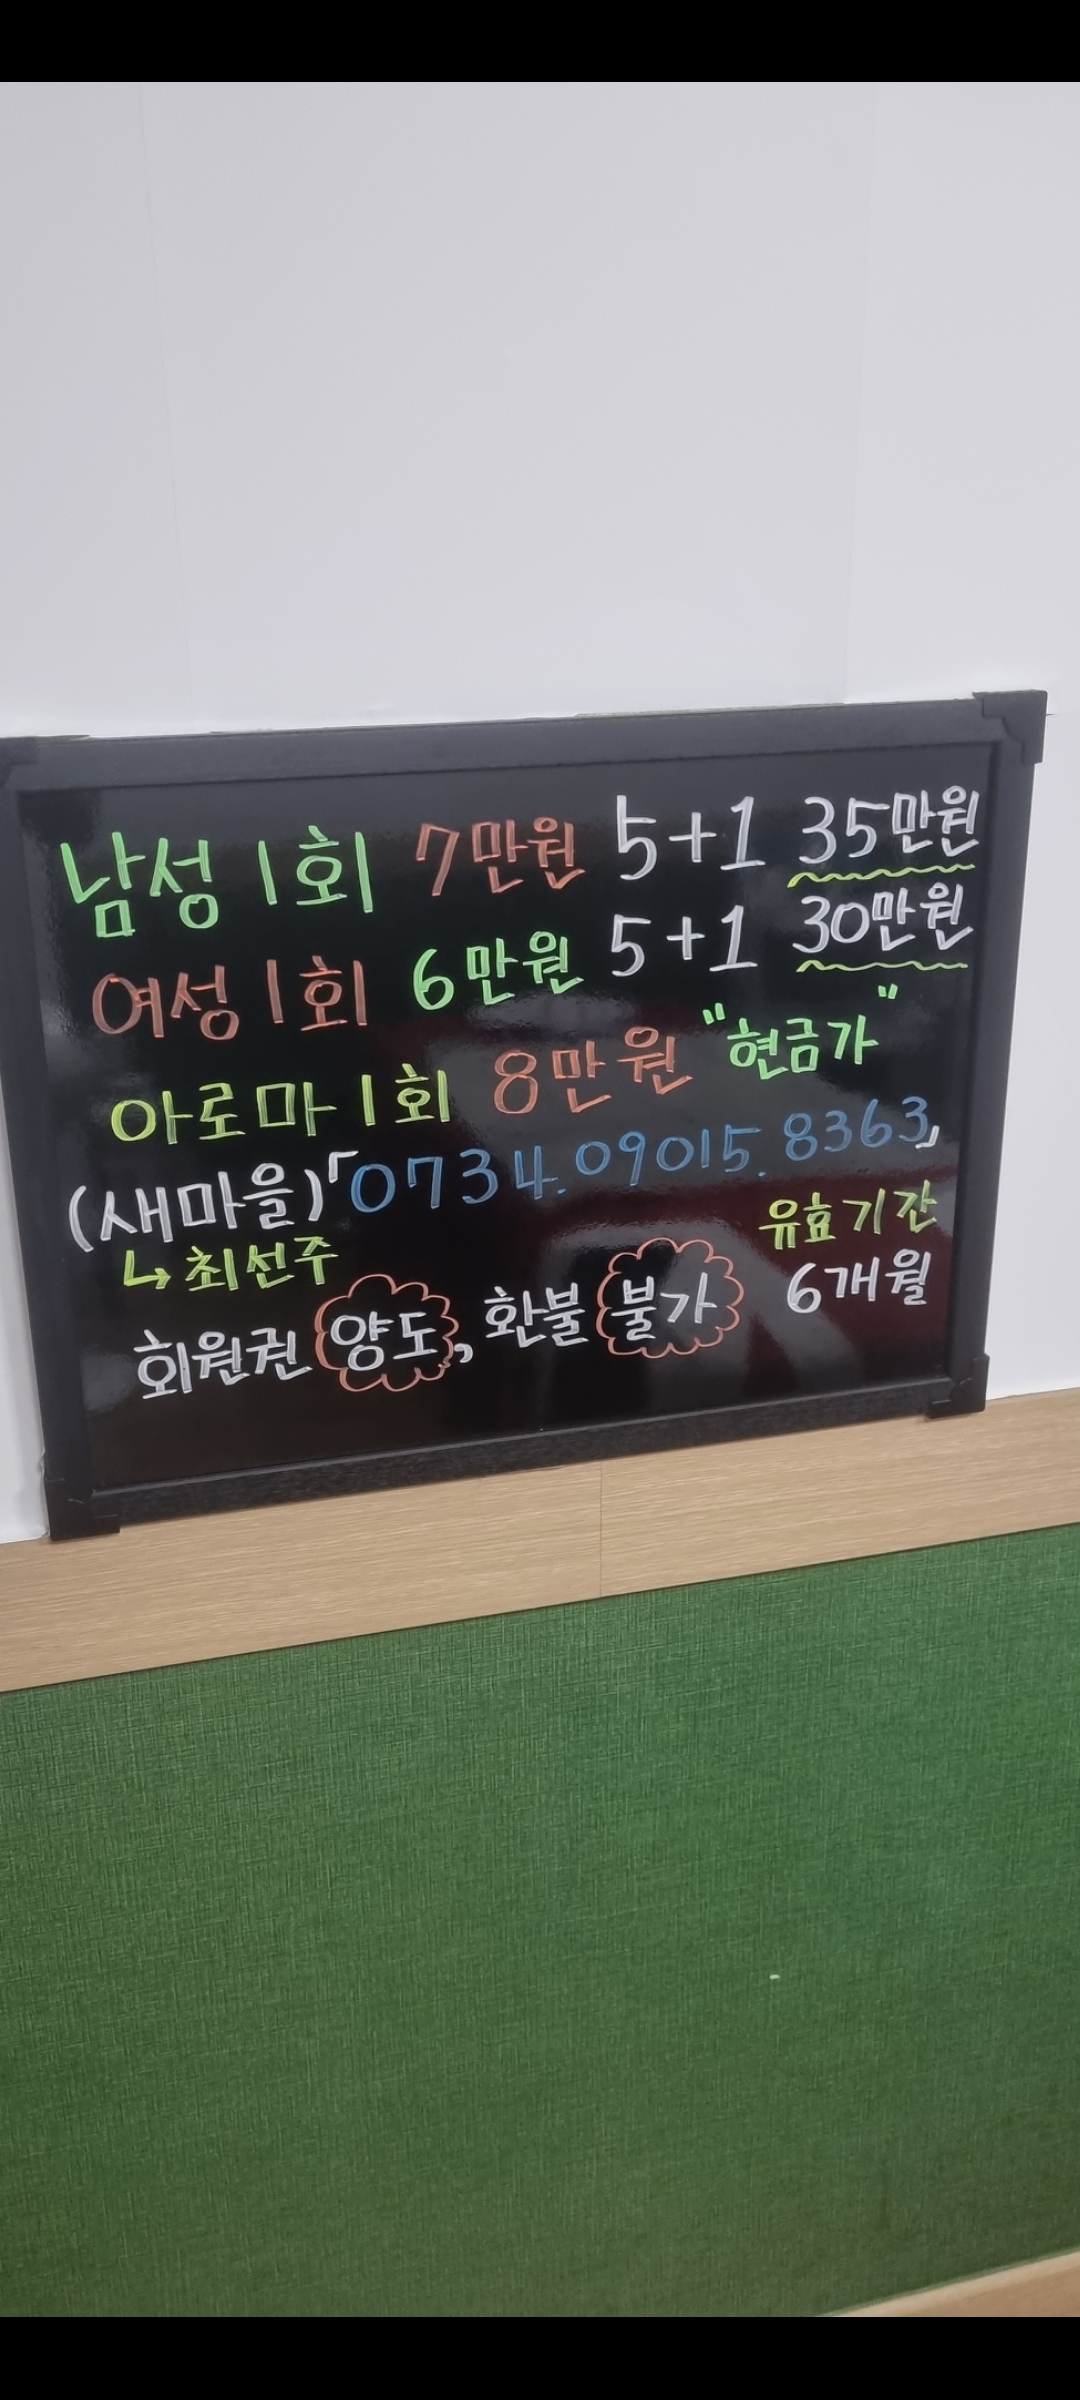 남성 1회 7만원 5+1 35만원
여성 1회 6만원 5+1 30만원
아로마 1회 8만원 "현금가"
(새마을)「0734.09015.8363」
↳최선주 유효기간
회원권 양도, 환불 불가 6개월